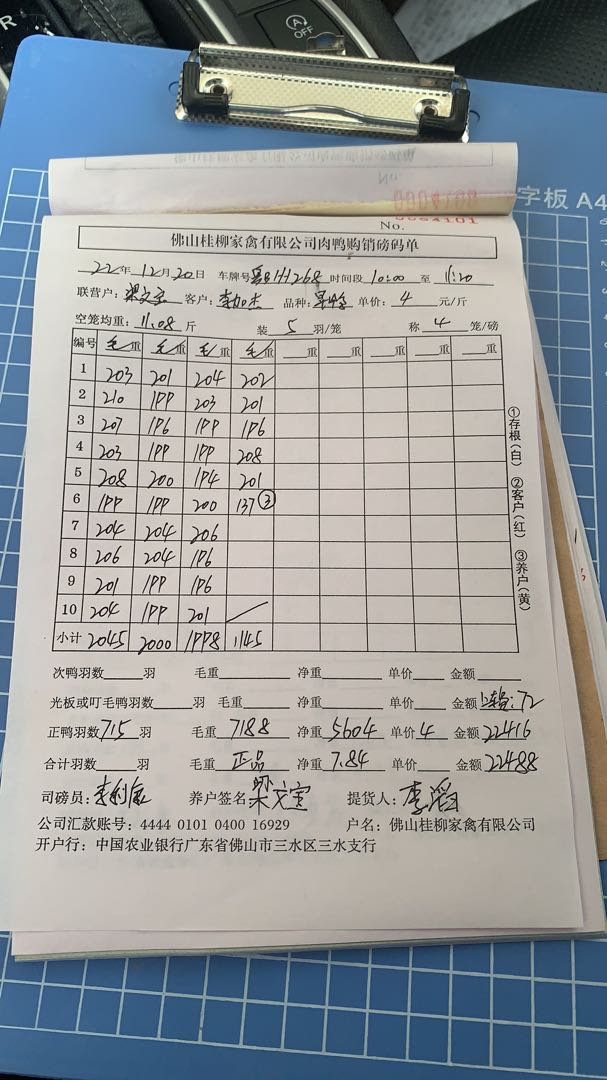 R
A
OFF
0004101
No.
字板 A4
佛山桂柳家禽有限公司肉鸭购销磅码单
22年 12月 20日 车牌号 H1268 时间段 10:00 至 11:20
联营户：梁文宝 客户：李加杰 品种： 单价：4 元/斤
空笼均重：11.08 斤 装 5 羽/笼 称 4 笼/磅
编号 毛重 毛重 毛重 毛重 重 重 重 重 重
1 203 201 204 202
2 210 199 203 201
3 207 196 199 196
4 203 199 199 208
5 208 200 194 201
6 199 199 200 137③
7 204 204 206
8 206 204 196
9 201 199 196
10 204 199 201
小计 2045 2000 1998 1145
①存根（白） ②客户（红） ③养户（黄）
次鸭羽数 羽 毛重 净重 单价 金额
光板或叮毛鸭羽数 羽 毛重 净重 单价 金额 :72
正鸭羽数 715 羽 毛重 7188 净重 5604 单价 4 金额 22416
合计羽数 羽 毛重 正品 净重 7.84 单价 金额 22488
司磅员： 养户签名 梁文宝 提货人：李滔
公司汇款账号：4444 0101 0400 16929 户名：佛山桂柳家禽有限公司
开户行：中国农业银行广东省佛山市三水区三水支行